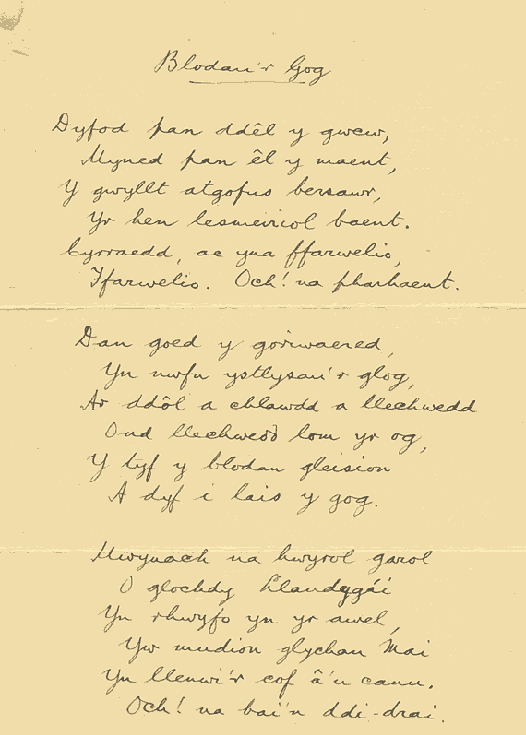 Blodau'r Gog
Dyfod pan ddêl y gwcw,
Myned pan êl y maent,
Y gwyllt atgofus bersawr,
Yr hen lesmeiriol baent.
Cyrraedd, ac yna ffarwelio,
Ffarwelio. Och! na pharhaent.
Dan goed y goriwaered,
Yn nwfn ystlysau'r glog,
Ar ddôl a chlawdd a llechwedd
Ond llechwedd lom yr og,
Y tyf y blodau gleision
A dyf i lais y gog.
Mwynach na hwyrol garol
O glochdy Llandygái
Yn rhwyfo yn yr awel,
Yw mudion glychau Mai
Yn llenwi'r cof â'u canu.
Och! na bai'n ddi-drai.